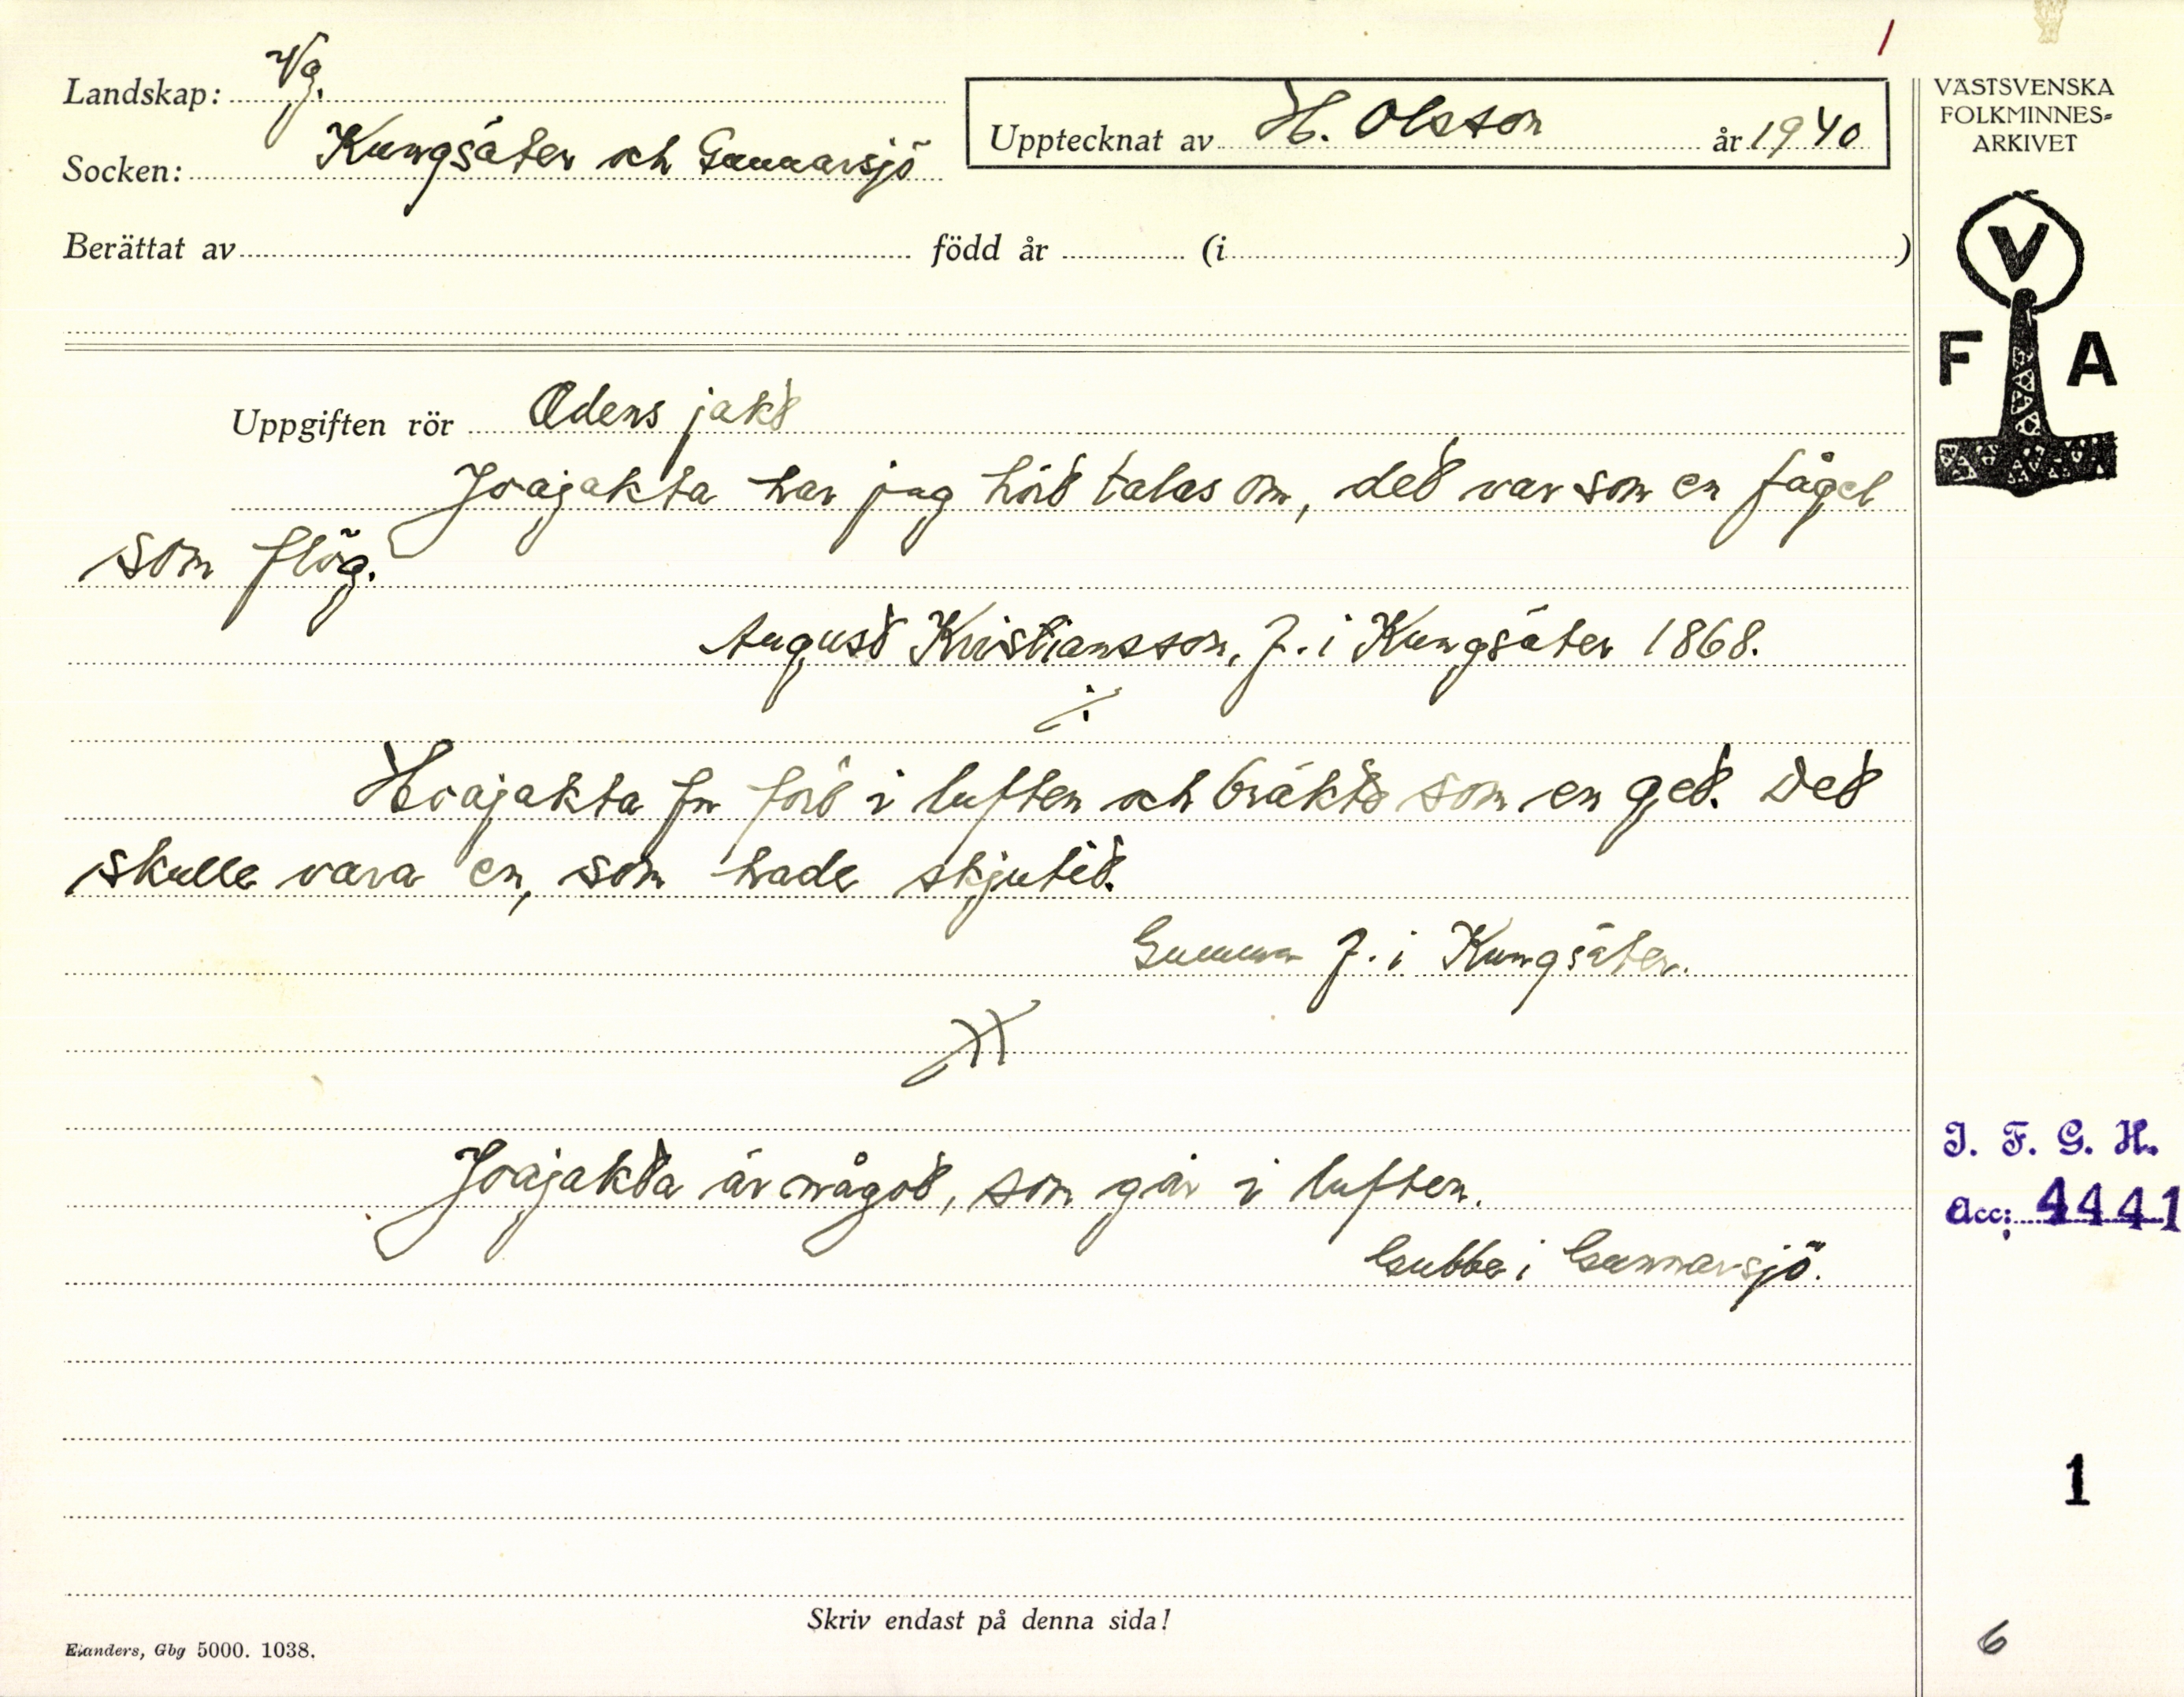 1
Landskap: Vg.
Socken: Kungsäter och Gunnarsjö
Upptecknat av H. Olsson år 1940
Berättat av född år (i )
VÄSTSVENSKA
FOLKMINNES-
ARKIVET
V
F A
Uppgiften rör Odens jakt
Joajakta har jag hört talas om, det var som en fågel
som flög.
August Kristiansson, f. i Kungsäter 1868.
Hoajakta for fort i luften och bräkte som en get. Det
skulle vara en, som hade skjutit.
Gumma f. i Kungsäter.
Joajakta är något, som går i luften.
Gubbe i Gunnarsjö.
I. F. G. H.
Acc: 4441
1
Skriv endast på denna sida!
Elanders, Gbg 5000. 1038.
6